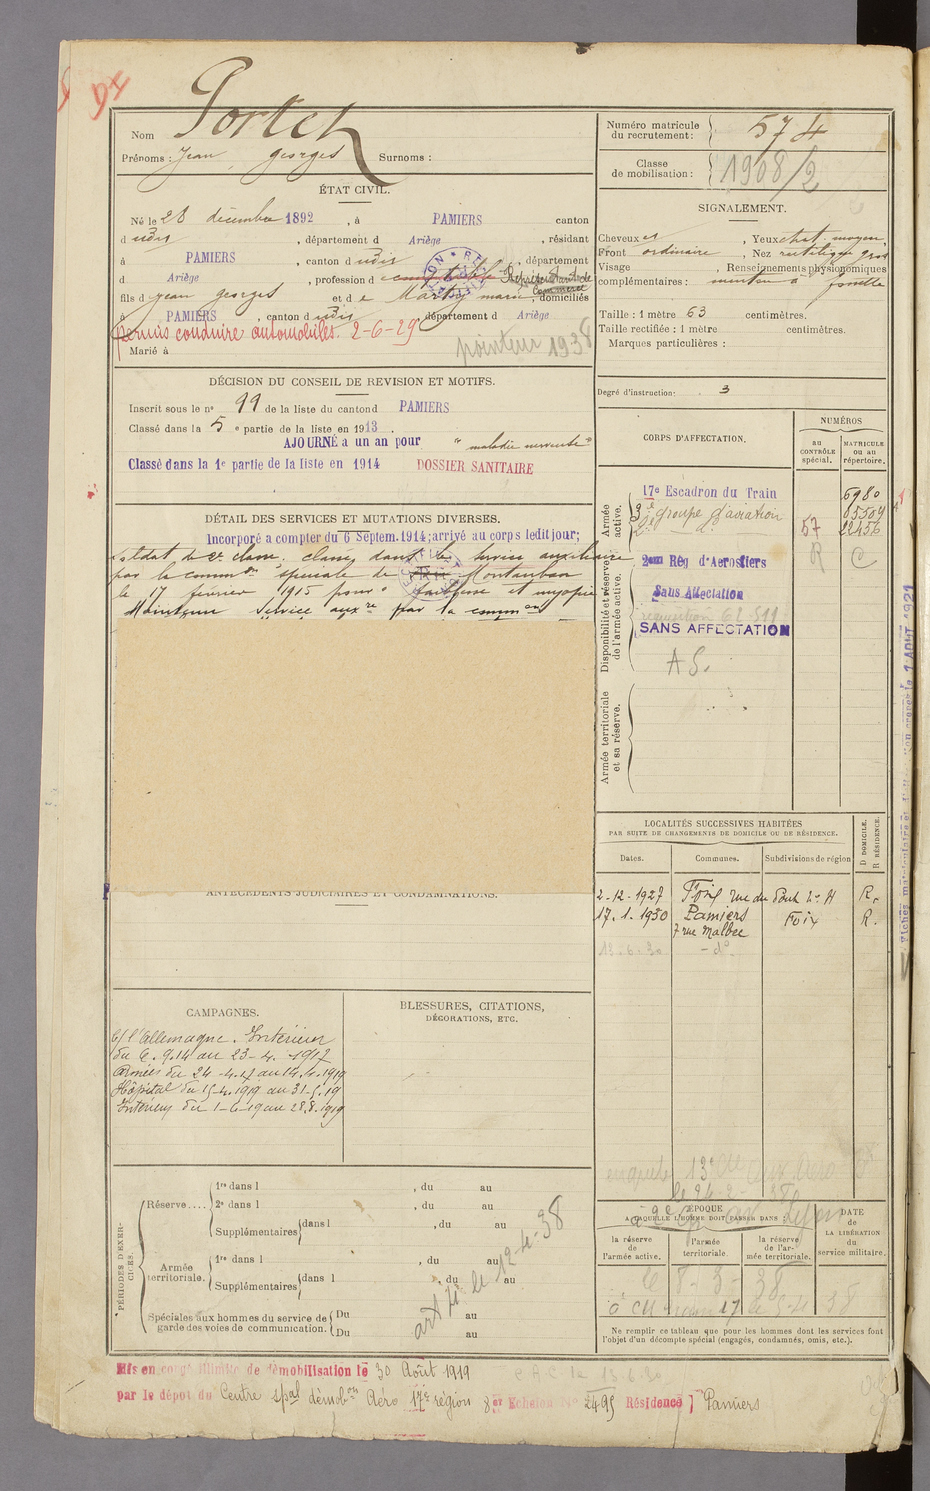 94
Nom Portet
Prénoms : Jean, Georges Surnoms :
ÉTAT CIVIL.
Né le 28 décembre 1892, à PAMIERS canton
dudis, département d Ariège, résidant
à PAMIERS, canton dudis, département
d Ariège, profession de comptable
fils de Jean Georges et de Marty Marie, domiciliés
à PAMIERS, canton dudis, département d Ariège
Permis conduire automobiles. 2-6-29
pointeur 1938
Marié à
DÉCISION DU CONSEIL DE REVISION ET MOTIFS.
Inscrit sous le no 99 de la liste du canton d PAMIERS
Classé dans la 5e partie de la liste en 1913.
AJOURNÉ a un an pour "maladie nerveuse"
Classé dans la 1e partie de la liste en 1914 DOSSIER SANITAIRE
DÉTAIL DES SERVICES ET MUTATIONS DIVERSES.
Incorporé a compter du 6 Septem. 1914; arrivé au corps ledit jour;
soldat de 2e classe. classé dans le service auxiliaire
par la common spéciale de Montauban
le 17 février 1915 pour faiblesse et myopie
Maintenu service auxre par la common
ANTÉCÉDENTS JUDICIAIRES ET CONDAMNATIONS.
CAMPAGNES.
C/ l'Allemagne. Intérieur
du 6.9.14 au 23-4-1917
Armées du 24-4-17 au 14.4.1919
Hôpital du 15-4.1919 au 31-5.19
Intérieur du 1-6-19 au 28.8.1919
BLESSURES, CITATIONS,
DÉCORATIONS, ETC.
PÉRIODES D'EXERCICES.
Réserve....
1re dans l , du au
2e dans l , du au
Supplémentaires dans l , du au
Armée territoriale.
1re dans l , du au
Supplémentaires dans l , du au
Spéciales aux hommes du service de garde des voies de communication.
Du au
Du au
le 12-4-38
Mis en congé illimité de démobilisation le 30 Août 1919
par le dépôt du Centre spal démobon Aéro 17e région 8er Echelon No 2495 Résidence Pamiers
Numéro matricule
du recrutement : 574
Classe
de mobilisation : 1908/2
SIGNALEMENT.
Cheveux , Yeux chat. moyen,
Front ordinaire, Nez rectiligne gros
Visage , Renseignements physionomiques
complémentaires : menton à fossette
Taille : 1 mètre 63 centimètres.
Taille rectifiée : 1 mètre centimètres.
Marques particulières :
Degré d'instruction : 3
CORPS D'AFFECTATION.
NUMÉROS
au CONTRÔLE spécial.
MATRICULE ou au répertoire.
Armée active.
17e Escadron du Train 6980
3e Groupe d'aviation 85509
2e do 57 22456
R C
Disponibilité et réserve de l'armée active.
2eme Rég d'Aerostiers
Sans Affectation
SANS AFFECTATION
A S.
Armée territoriale et sa réserve.
LOCALITÉS SUCCESSIVES HABITÉES
PAR SUITE DE CHANGEMENTS DE DOMICILE OU DE RÉSIDENCE.
Dates. Communes. Subdivisions de région D DOMICILE. R RÉSIDENCE.
2-12-1927 Foix rue du Pont R.
17.1.1930 Pamiers Foix R.
7 rue Malbec
13.6.30 -do-
ÉPOQUE
A LAQUELLE L'HOMME DOIT PASSER DANS :
la réserve de l'armée active.
l'armée territoriale.
la réserve de l'armée territoriale.
DATE de LA LIBÉRATION du service militaire.
le 8-3-38
Ne remplir ce tableau que pour les hommes dont les services font
l'objet d'un décompte spécial (engagés, condamnés, omis, etc.).